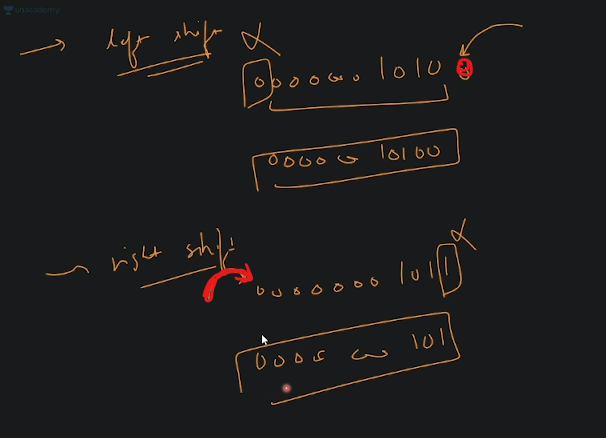 unacademy
left shift
0000000 1010 0
0000 00 10100
right shift
0000000 1011
0000 00 101